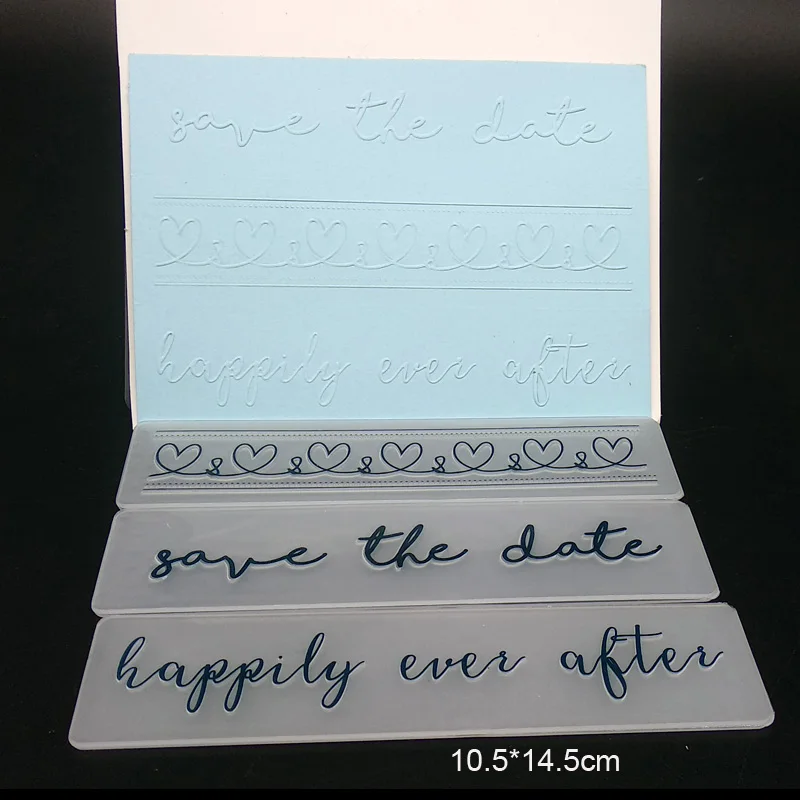 save the date
happily ever after
save the date
happily ever after
10.5*14.5cm